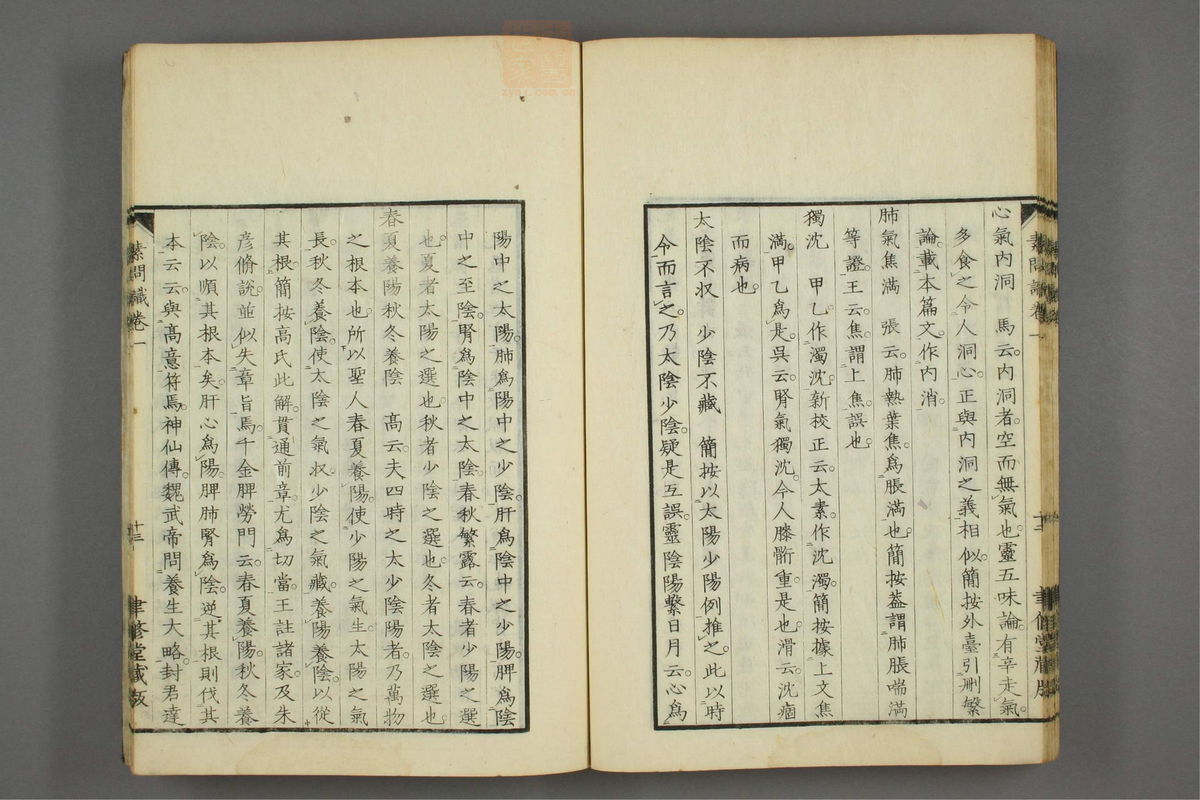 素問識卷一
心氣內洞　馬云。內洞者。空而無氣也。靈五味論。有辛走氣。
多食之。令人洞心。正與內洞之義相似。簡按外臺引刪繁
論。載本篇文。作內消。
肺氣焦滿　張云。肺熱葉焦。爲脹滿也。簡按葢謂肺脹喘滿
等證。王云。焦謂上焦。誤也。
獨沈　甲乙作濁沈。新校正云。太素。作沈濁。簡按據上文焦
滿。甲乙爲是。吳云。腎氣獨沈。令人膝䯒重是也。滑云。沈痼
而病也。
太陰不収　少陰不藏　簡按以太陽少陽例推之。此以時
令而言之。乃太陰少陰。疑是互誤。靈陰陽繫日月云。心爲
陽中之太陽。肺爲陽中之少陰。肝爲陰中之少陽。脾爲陰
中之至陰。腎爲陰中之太陰。春秋繁露云。春者少陽之選
也。夏者太陽之選也。秋者少陰之選也。冬者太陰之選也。
春夏養陽秋冬養陰　高云。夫四時之太少陰陽者。乃萬物
之根本也。所以聖人春夏養陽。使少陽之氣生。太陽之氣
長。秋冬養陰。使太陰之氣収。少陰之氣藏。養陽養陰。以從
其根。簡按高氏此解。貫通前章。尤爲切當。王註諸家。及朱
彥脩說。並似失章旨焉。千金脾勞門云。春夏養陽。秋冬養
陰。以順其根本矣。肝心爲陽。脾肺腎爲陰。逆其根則伐其
本云云。與高意符焉。神仙傳。魏武帝問養生大略。封君達
素問識卷一
十三
聿脩堂藏版